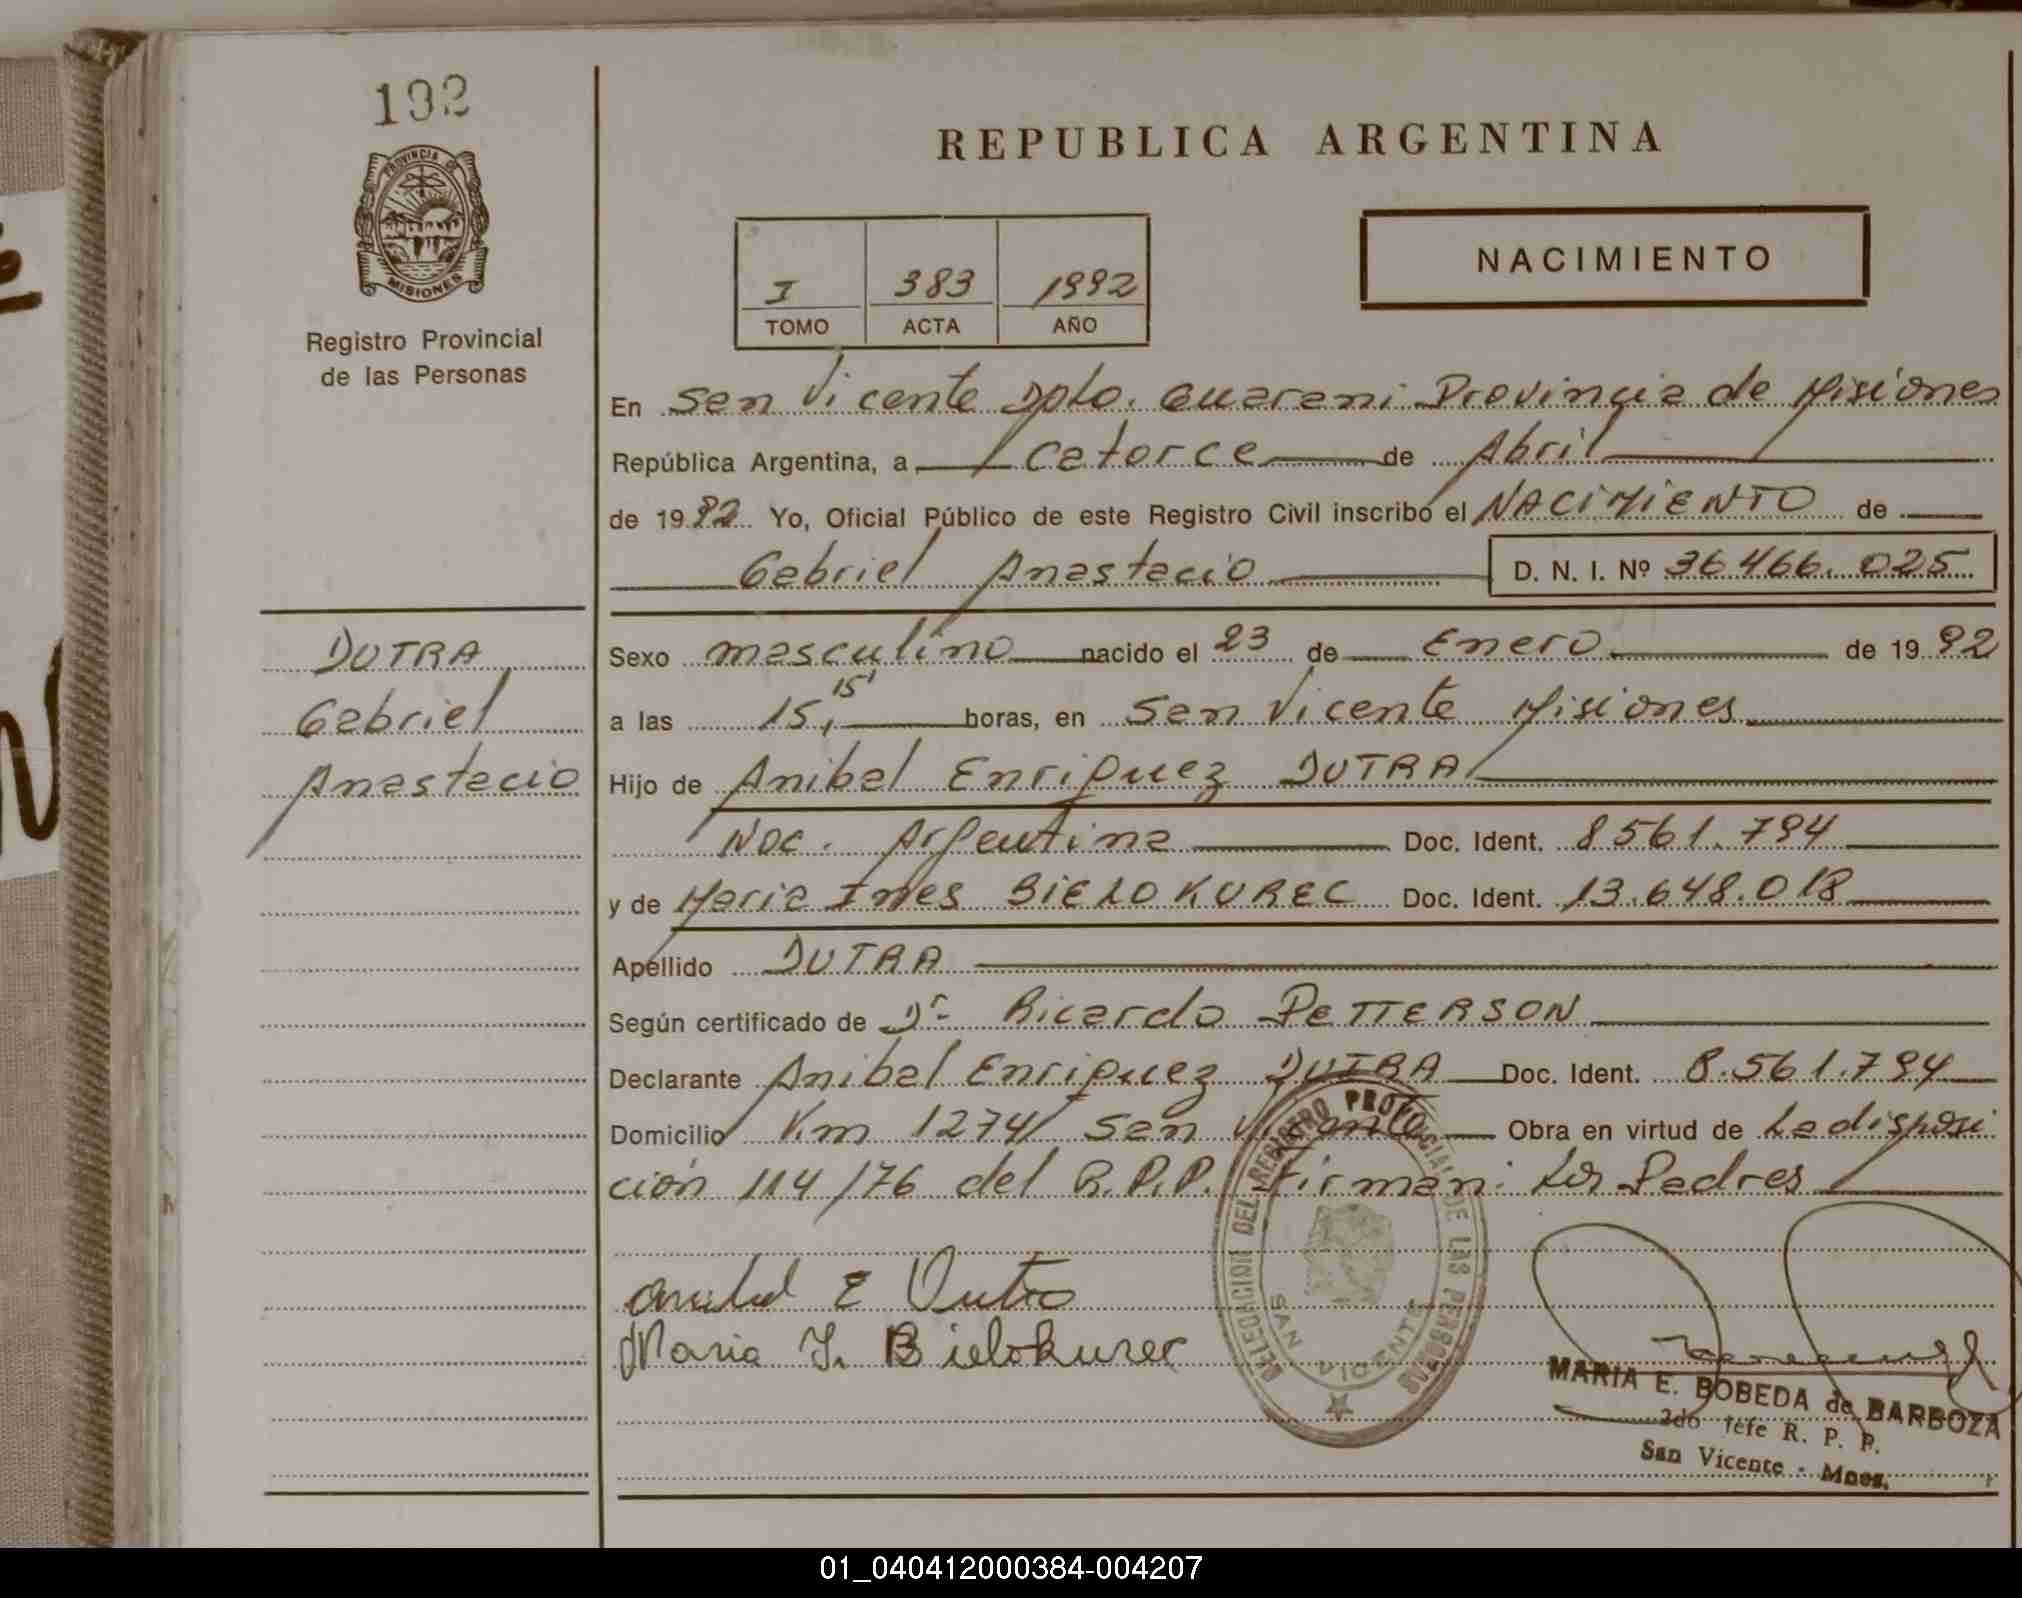 192
PROVINCIA DE
MISIONES
Registro Provincial
de las Personas
REPUBLICA ARGENTINA
I 383 1992
TOMO ACTA AÑO
NACIMIENTO
En San Vicente Dpto. Guarani Provincia de Misiones
República Argentina, a catorce de Abril
de 1992 Yo, Oficial Público de este Registro Civil inscribo el NACIMIENTO de
Gabriel Anastacio D. N. I. Nº 36466.025
DUTRA
Gabriel
Anastacio
Sexo masculino nacido el 23 de Enero de 1992
a las 15,15' horas, en San Vicente Misiones
Hijo de Anibal Enriquez DUTRA
Nac. Argentina Doc. Ident. 8561.794
y de Maria Ines BIELOKUREC Doc. Ident. 13.648.018
Apellido DUTRA
Según certificado de Dr Ricardo PETTERSON
Declarante Anibal Enriquez DUTRA Doc. Ident. 8.561.794
Domicilio Km 1274 San Vicente Obra en virtud de La disposi
ción 114/76 del R.P.P. Firman: Los Padres
Anibal E Dutra
Maria I. Bielokurec
DELEGACION DEL REGISTRO PROVINCIAL DE LAS PERSONAS
SAN VICENTE
MARIA E. BOBEDA de BARBOZA
2do Jefe R. P. P.
San Vicente - Mnes.
01_040412000384-004207